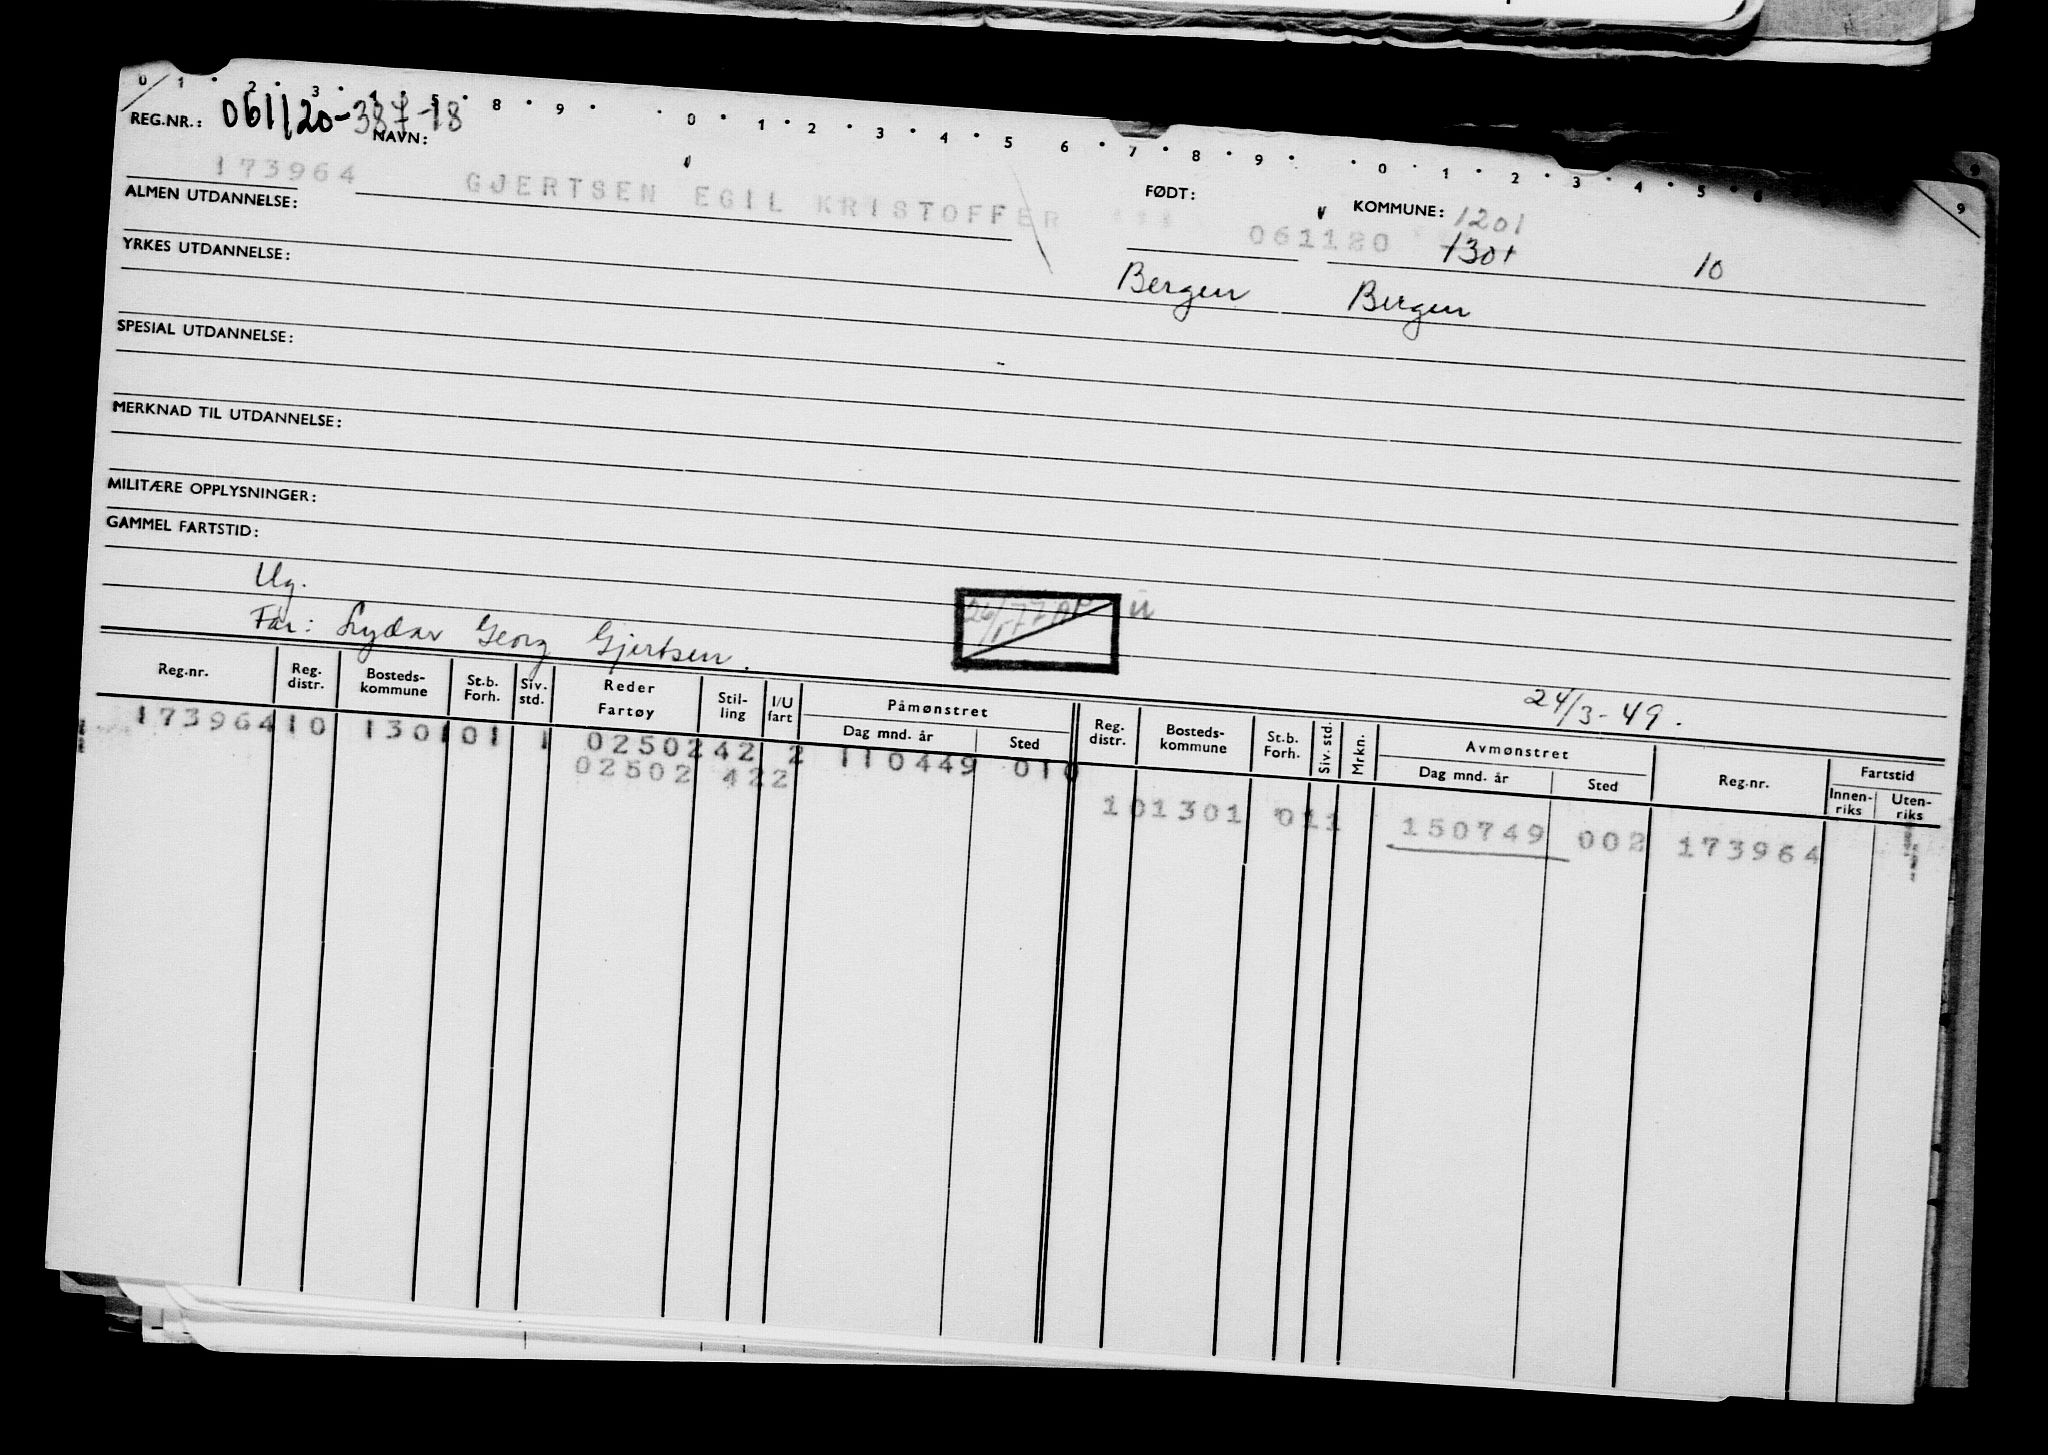 0 1 2 3 4 5 8 9 0 1 2 3 4 5 6 7 8 9 0 1 2 3 4 5 6 9
REG.NR.: 061120-387-18 NAVN:
173964 GJERTSEN EGIL KRISTOFFER FØDT: 061120 KOMMUNE: 1201
1301 10
ALMEN UTDANNELSE:
Bergen Bergen
YRKES UTDANNELSE:
SPESIAL UTDANNELSE:
MERKNAD TIL UTDANNELSE:
MILITÆRE OPPLYSNINGER:
GAMMEL FARTSTID:
Ug.
Far: Lydar Georg Gjertsen.
24/3-49.
Reg.nr. Reg. distr. Bosteds-kommune St.b. Forh. Siv. std. Reder Fartøy Stil-ling I/U fart Påmønstret Dag mnd. år Sted Reg. distr. Bosteds-kommune St.b. Forh. Siv. std. Mrkn. Avmønstret Dag mnd. år Sted Reg.nr. Fartstid Innen-riks Uten-riks
173964 10 1301 01 1 02502 42 2 110449 010
02502 42 2
10 1301 01 1 150749 002 173964